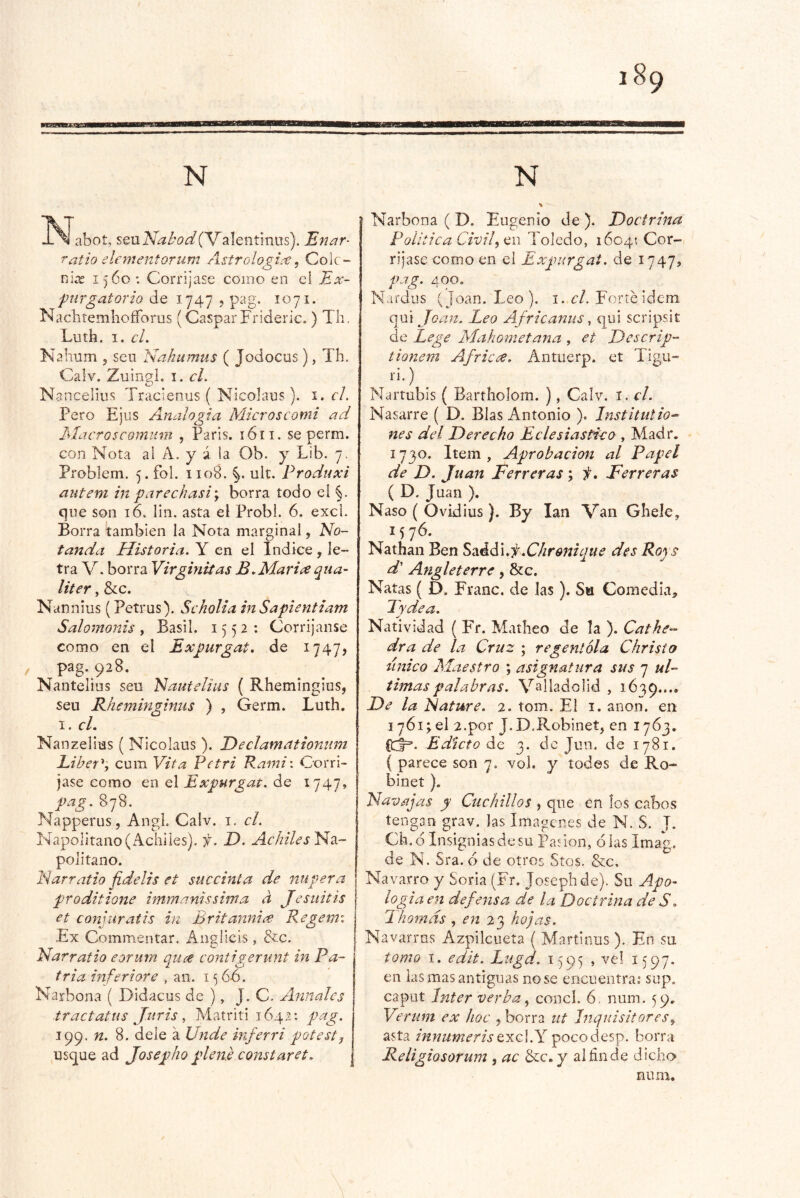 189
N
Nabot, seu Nabod (Valentinus). Enar-
ratio elementorum Astrologiæ, Colo-
niæ 1560: Corrijase como en el Ex-
purgatorio de 1747, pag. 1071.
Nachtemhofforus (Caspar Frideric.) Th.
Luth. 1. cl.
Nahum, seu Nahumus (Jodocus), Th.
Calv. Zuingl. 1. cl.
Nancelius Tracienus (Nicolaus). 1. cl.
Pero Ejus Analogia Microscomi ad
Macroscomum, Paris. 1611. se perm.
con Nota al A. y á la Ob. y Lib. 7.
Problem. 5. fol. 1108. §. ult. Produxi
autem in parechasi; borra todo el §.
que son 16. lin. asta el Probl. 6. excl.
Borra tambien la Nota marginal, No-
tanda Historia. Y en el Indice, le-
tra V. borra Virginitas B. Mariæ qua-
liter, &c.
Nannius (Petrus). Scholia in Sapientiam
Salomonis, Basil. 1552: Corrijanse
como en el Expurgat. de 1747,
pag. 928.
Nantelius seu Nautelius (Rhemingius,
seu Rheminginus), Germ. Luth.
1. cl.
Nanzelius (Nicolaus). Declamationum
Liber, cum Vita Petri Rami: Corri-
jase como en el Expurgat. de 1747,
pag. 878.
Napperus, Angl. Calv. 1. cl.
Napolitano (Achiles). ℣. D. Achiles Na-
politano.
Narratio fidelis et succinta de nupera
proditione immanissima à Jesuitis
et conjuratis in Britanniæ Regem:
Ex Commentar. Anglicis, &c.
Narratio eorum quæ contigerunt in Pa-
tria inferiore, an. 1566.
Narbona (Didacus de), J. C. Annales
tractatus Juris, Matriti 1642: pag.
199. n. 8. dele à Unde inferri potest,
usque ad Josepho plenè constaret.
N
Narbona (D. Eugenio de). Doctrina
Politica Civil, en Toledo, 1604: Cor-
rijase como en el Expurgat. de 1747,
pag. 400.
Nardus (Joan. Leo). 1. cl. Fortè idem
qui Joan. Leo Africanus, qui scripsit
de Lege Mahometana, et Descrip-
tionem Africæ. Antuerp. et Tigu-
ri.)
Nartubis (Bartholom.), Calv. 1. cl.
Nasarre (D. Blas Antonio). Institutio-
nes del Derecho Eclesiastico, Madr.
1730. Item, Aprobacion al Papel
de D. Juan Ferreras; ℣. Ferreras
(D. Juan).
Naso (Ovidius). By Ian Van Ghele,
1576.
Nathan Ben Saddi. ℣. Chronique des Roys
d' Angleterre, &c.
Natas (D. Franc. de las). Su Comedia,
Tydea.
Natividad (Fr. Matheo de la). Cathe-
dra de la Cruz; regentóla Christo
único Maestro; asignatura sus 7 ul-
timas palabras. Valladolid, 1639....
De la Nature. 2. tom. El 1. anon. en
1761; el 2. por J. D. Robinet, en 1763.
☞. Edicto de 3. de Jun. de 1781.
(parece son 7. vol. y todes de Ro-
binet).
Navajas y Cuchillos, que en los cabos
tengan grav. las Imagenes de N. S. J.
Ch. ó Insignias de su Pasion, ó las Imag.
de N. Sra. ó de otros Stos. &c.
Navarro y Soria (Fr. Joseph de). Su Apo-
logia en defensa de la Doctrina de S.
Thomás, en 23 hojas.
Navarrus Azpilcueta (Martinus). En su
tomo 1. edit. Lugd. 1595, vel 1597.
en las mas antiguas no se encuentra: sup.
caput Inter verba, concl. 6. num. 59.
Verum ex hoc, borra ut Inquisitores,
asta innumeris excl. Y poco desp. borra
Religiosorum, ac &c. y al fin de dicho
num.